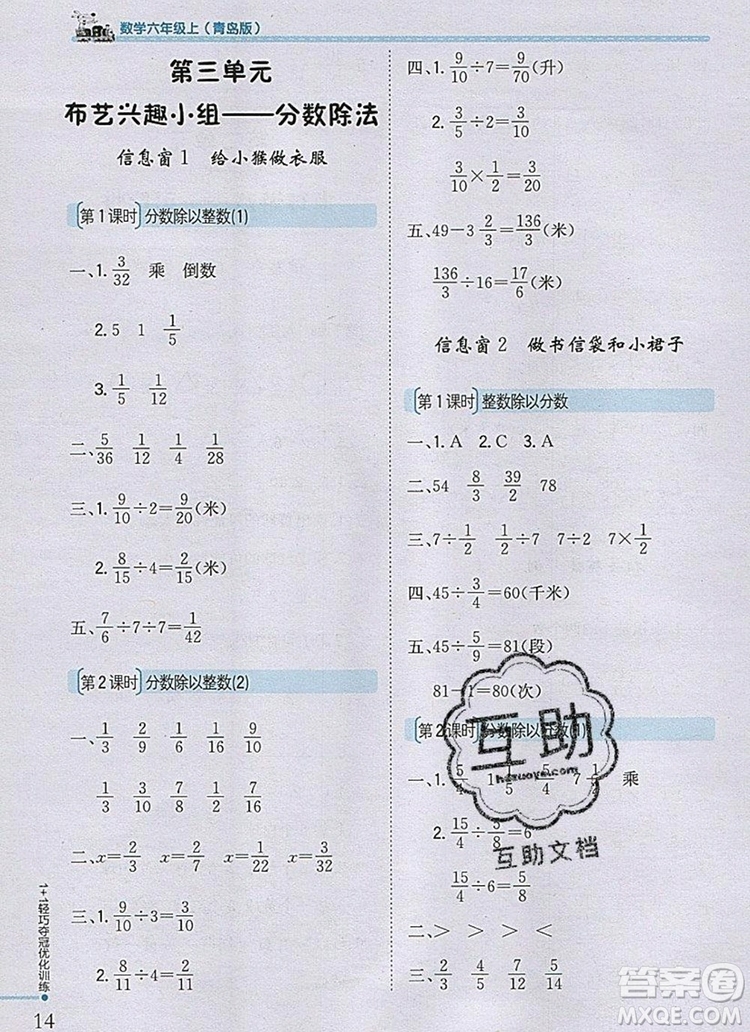 数学六年级上(青岛版)
第三单元
布艺兴趣小组——分数除法
信息窗1 给小猴做衣服
第1课时 分数除以整数(1)
一、1. 3/32 乘 倒数
2. 5 1 1/5
3. 1/5 1/12
二、5/36 1/12 1/4 1/28
三、1. 9/10÷2=9/20(米)
2. 8/15÷4=2/15(米)
五、7/6÷7÷7=1/42
第2课时 分数除以整数(2)
一、1/3 2/9 1/6 1/16 9/10
1/3 3/10 7/8 7/16 4/9
二、x=2/3 x=2/7 x=1/22 x=3/32
三、1. 9/10÷3=3/10
2. 8/11÷4=2/11
1+1轻巧夺冠优化训练
14
四、1. 9/10÷7=9/70(升)
2. 3/5÷2=3/10
3/10×1/2=3/20
五、49-3 2/3=136/3(米)
136/3÷16=17/6(米)
信息窗2 做书信袋和小裙子
第1课时 整数除以分数
一、1. A 2. C 3. A
二、54 8/3 39/2 78
三、7÷1/2 1/2÷7 7÷2 7×1/2
四、45÷3/4=60(千米)
五、45÷5/9=81(段)
81-1=80(次)
第2课时 分数除以分数(1)
一、1. 5/4 1 5/4 7 1/2 乘
2. 15/4÷5/8=6
15/4÷6=5/8
二、> > <
三、
互助
hezuoye.com
互助文档
答案圈
MXQE.COM